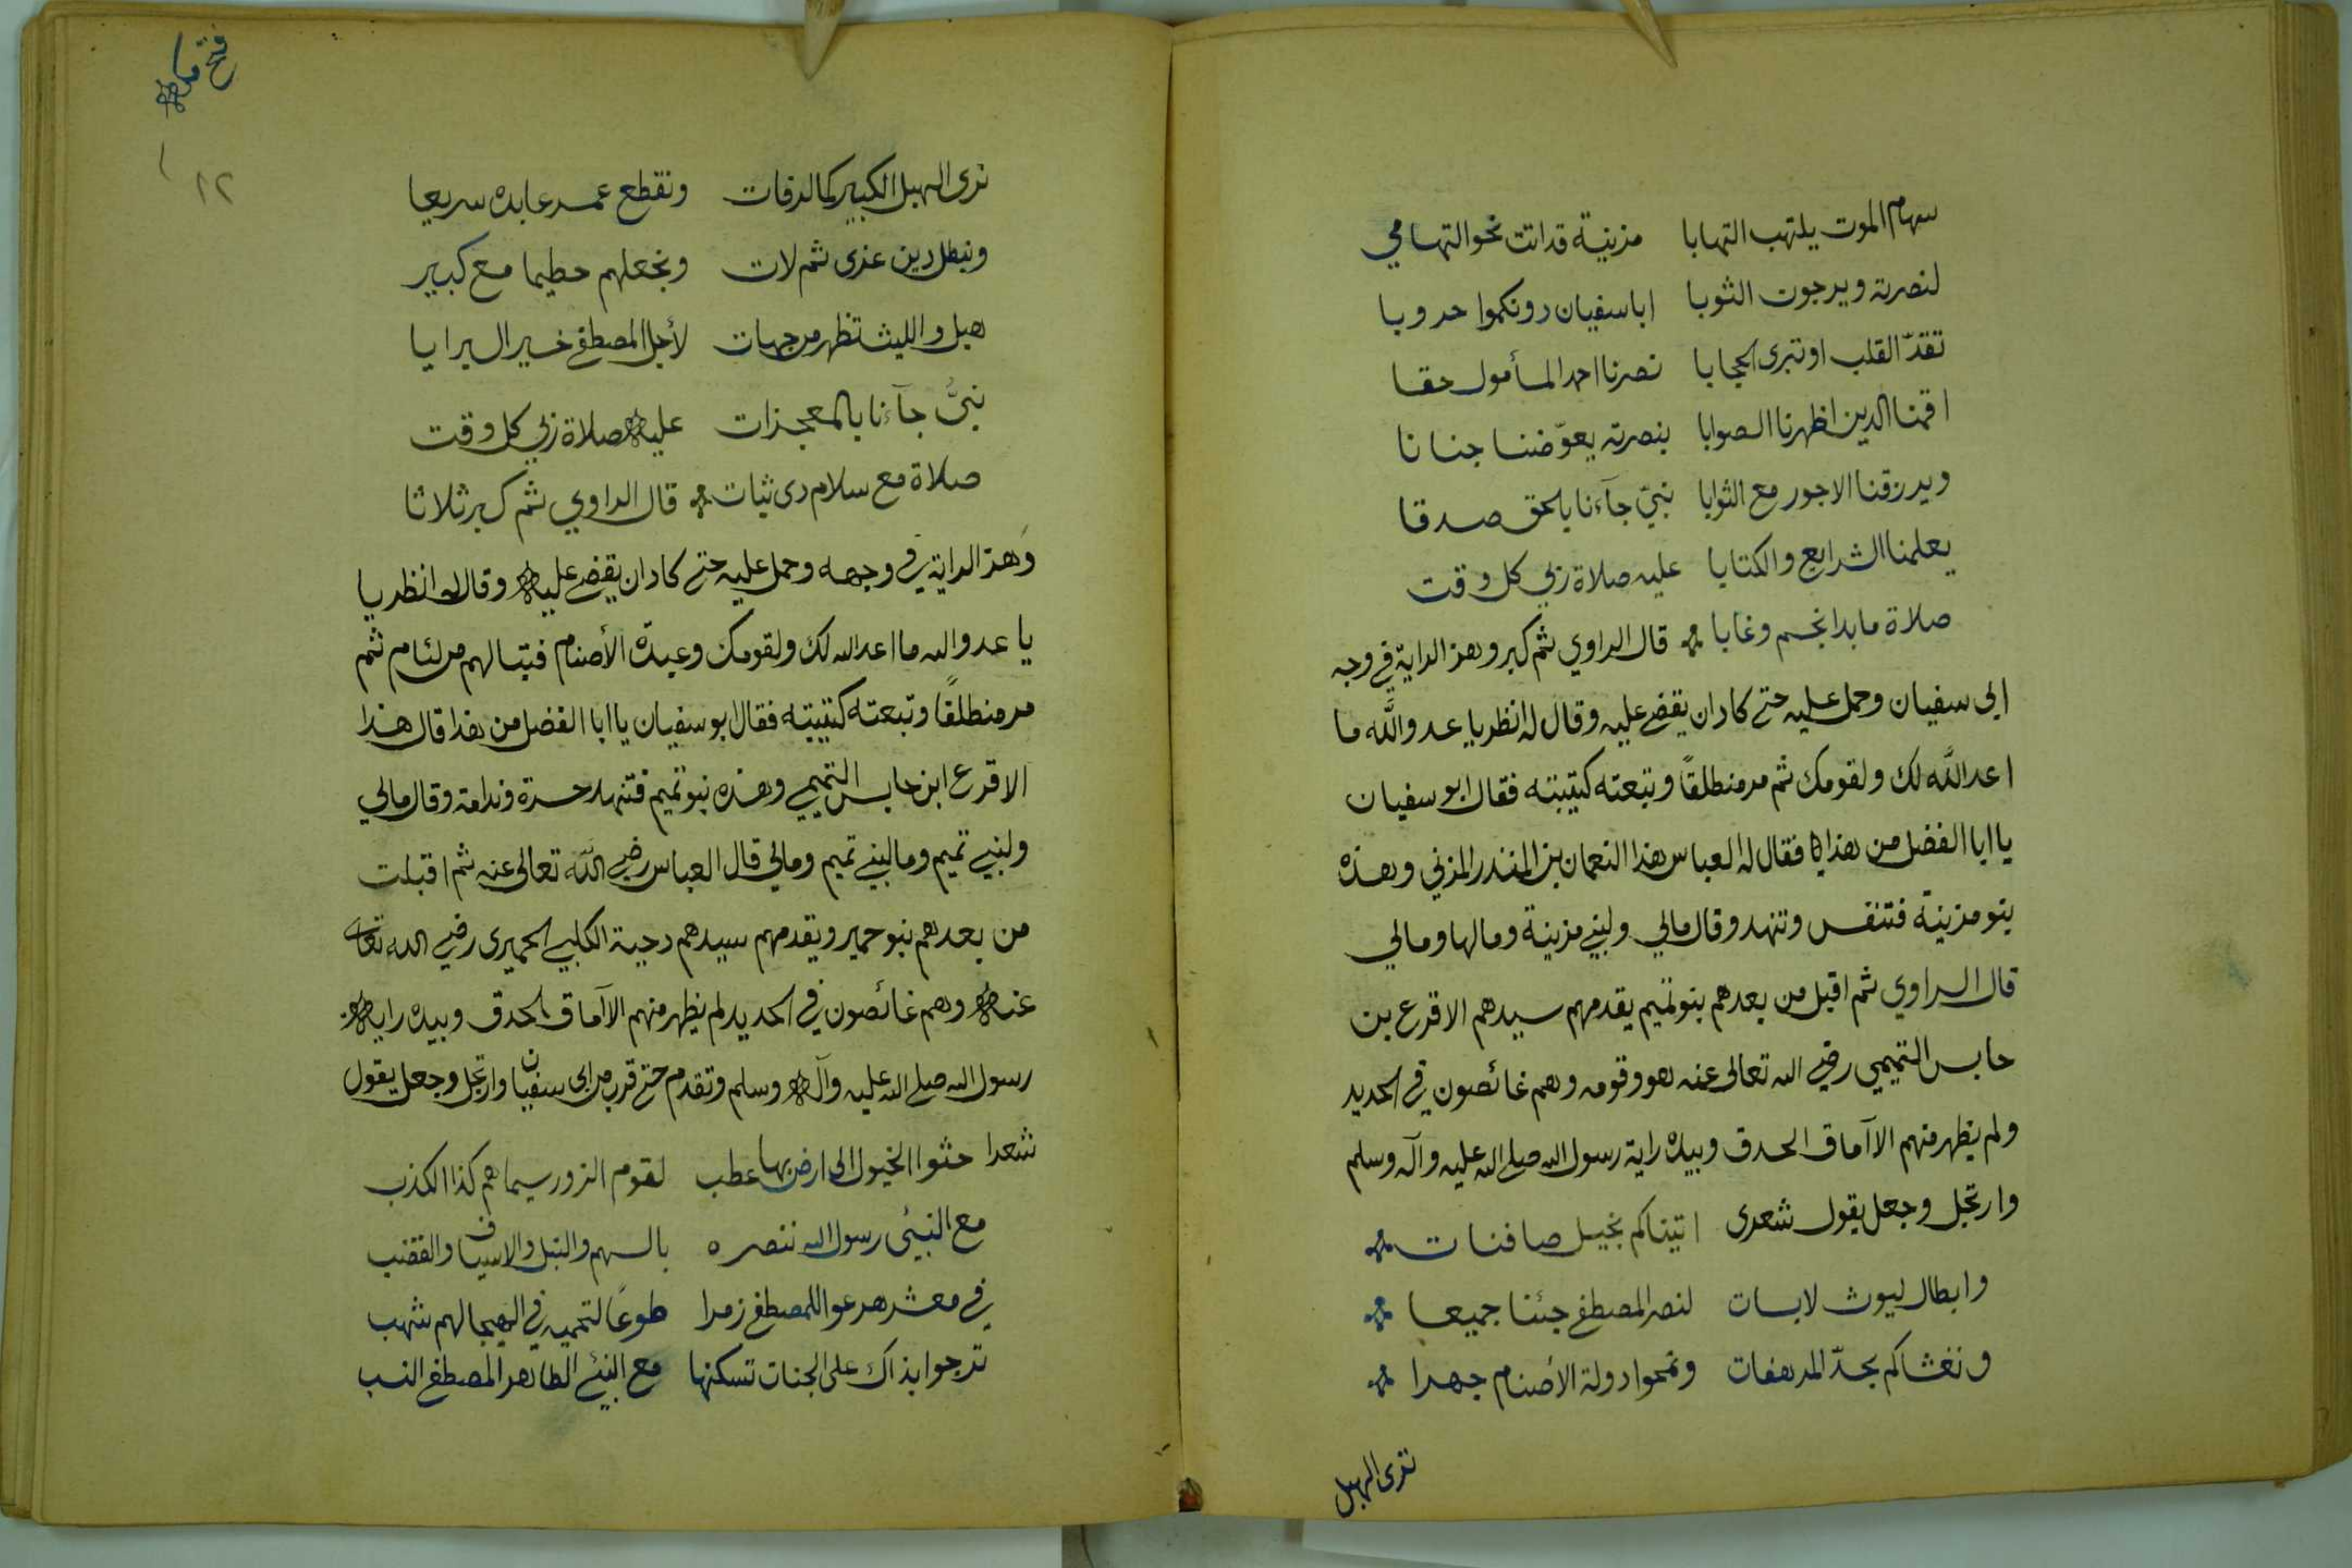 سهام الموت يلتهب التهابا مزينة قد اتت نحو التهامي
لنصرته ويرجون الثوبا ابا سفيان دونكموا حروبا
تقدّ القلب او تبرى الحجابا نصرنا احمد المأمول حقا
اقمنا الدين اظهرنا الصوابا بنصرته يعوّضنا جنانا
ويرزقنا الاجور مع الثوابا نبيّ جآءنا بالحق صدقا
يعلمنا الشرايع والكتابا عليه صلاة ربي كل وقت
صلاة ما بدا نجم وغابا قال الراوي ثم كبر وهز الراية في وجه
ابى سفيان وحمل عليه حتى كاد ان يقضى عليه وقال له انظر يا عدو الله ما
اعد الله لك ولقومك ثم مر منطلقًا وتبعته كتيبته فقال ابو سفيان
يا ابا الفضل من هذا فقال له العباس هذا النعمان بن المنذر المزني وهذه
بنو مزينة فتنفس وتنهد وقال مالي ولبني مزينة ومالها ومالي
قال الراوي ثم اقبل من بعدهم بنو تميم يقدمهم سيدهم الاقرع بن
حابس التميمي رضي الله تعالى عنه هو وقومه وهم غائصون في الحديد
ولم يظهر منهم الا آماق الحدق وبيده راية رسول الله صلى الله عليه وآله وسلم
وارتجل وجعل يقول شعرى اتيناكم بخيل صافنات
وابطال ليوث لابسات لنصر المصطفى جئنا جميعا
ونغشاكم بحدّ المرهفات ونمحوا دولة الأصنام جهرا
نرى الهبل
فتح مكة
١٢
نرى الهبل الكبير كما الرفات ونقطع عمر عابده سريعا
ونبطل دين عزى ثم لات ونجعلهم حطيما مع كبير
هبل والليث تظهر من جهات لأجل المصطفى خير البرايا
نبيُّ جآءنا بالمعجزات عليه صلاة ربي كل وقت
صلاة مع سلام دى ثبات قال الراوي ثم كبر ثلاثا
وَهز الراية في وجهه وحمل عليه حتى كاد ان يقضى عليه وقال له انظر يا
يا عدو الله ما اعد الله لك ولقومك وعبدة الأصنام فتبا لهم من لئام ثم
مر منطلقًا وتبعته كتيبته فقال ابو سفيان يا ابا الفضل من هذا قال هذا
الاقرع ابن حابس التميمي وهذه بنو تميم فتنهد حسرة وندامة وقال مالي
ولبني تميم وما لبني تميم ومالي قال العباس رضي الله تعالى عنه ثم اقبلت
من بعدهم بنو حمير ويقدمهم سيدهم دحية الكلبي الحميرى رضي الله تعالى
عنه وهم غائصون في الحديد لم يظهر منهم الا آماق الحدق وبيده راية
رسول الله صلى الله عليه وآله وسلم وتقدم حتى قرب من ابى سفيان وارتجل وجعل يقول
شعرا حثوا الخيول الى ارض بها عطب لقوم الزور سيماهم كذا الكذب
مع النبيّ رسول الله ننصره بالسهم والنبل والاسياف والقضب
في معشر هرعوا للمصطفى زمرا طوعًا لتحميه في الهيجا لهم شهب
ترجوا بذاك على الجنات تسكنها مع النبيّ الطاهر المصطفى النسب